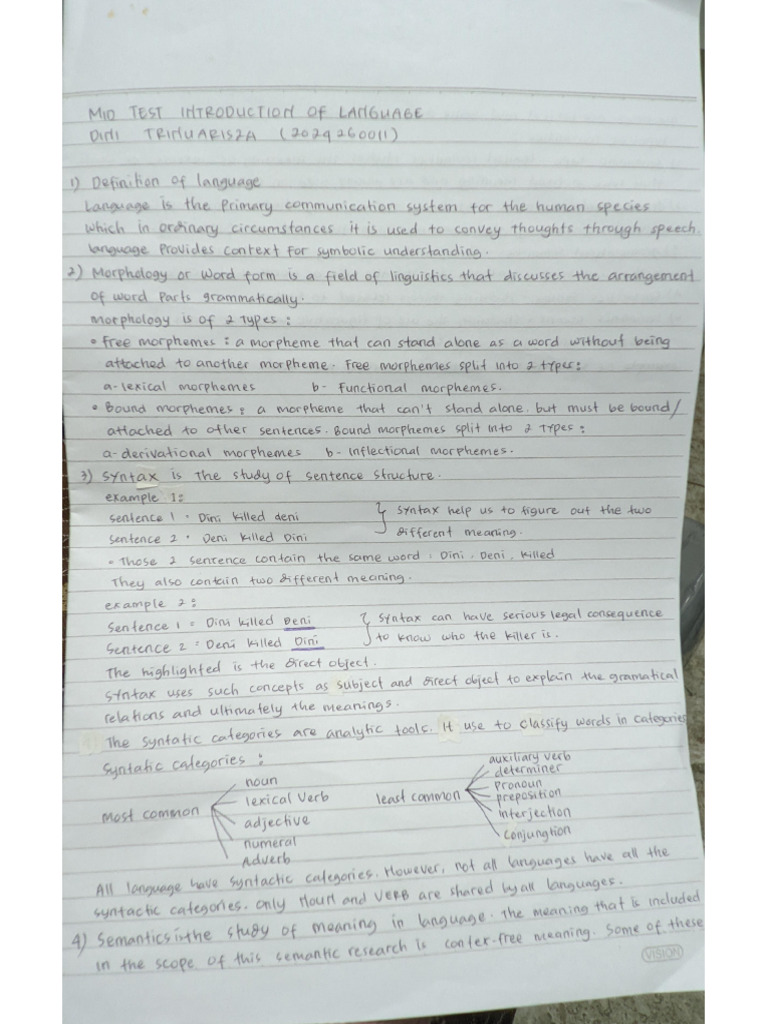 MID TEST INTRODUCTION OF LANGUAGE
DINI TRINUARISZA (2024260011)
1) Definition of language
Language is the Primary communication system for the human species
which in ordinary circumstances it is used to convey thoughts through speech.
language Provides context for symbolic understanding.
2) Morphology or word form is a field of linguistics that discusses the arrangement
of word Parts grammatically.
Morphology is of 2 types :
• Free morphemes : a morpheme that can stand alone as a word without being
attached to another morpheme. Free morphemes split into 2 types:
a- lexical morphemes b- Functional morphemes.
• Bound morphemes : a morpheme that can't stand alone, but must be bound/
attached to other sentences. Bound morphemes split into 2 types :
a- derivational morphemes b- Inflectional morphemes.
3) Syntax is the study of sentence structure.
example 1:
sentence 1 • Dini killed deni } syntax help us to figure out the two
sentence 2 • Deni killed Dini different meaning.
• Those 2 sentence contain the same word : Dini, Deni, killed
They also contain two different meaning.
example 2 :
Sentence 1 = Dini killed Deni } syntax can have serious legal consequence
Sentence 2 = Deni killed Dini to know who the killer is.
The highlighted is the direct object.
Syntax uses such concepts as subject and direct object to explain the gramatical
relations and ultimately the meanings.
The syntatic categories are analytic tools. It use to classify words in categories
Syntatic categories :
most common
noun
lexical verb
adjective
numeral
Adverb
least common
auxiliary verb
determiner
pronoun
preposition
interjection
conjungtion
All language have syntactic categories. However, not all languages have all the
syntactic categories. only Noun and VERB are shared by all languages.
4) Semantics is the study of meaning in language. The meaning that is included
in the scope of this semantic research is contex-free meaning. Some of these
VISION